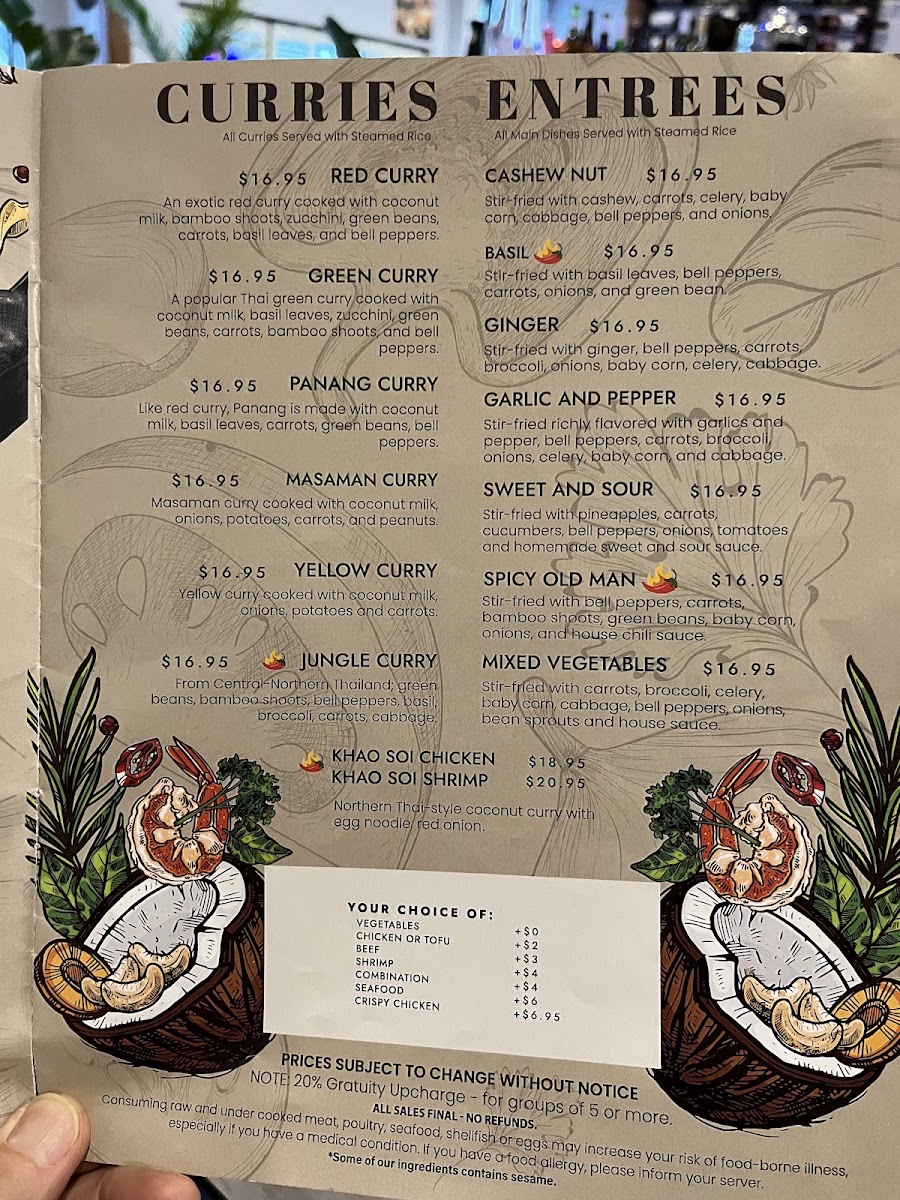 CURRIES
All Curries Served with Steamed Rice
$16.95 RED CURRY
An exotic red curry cooked with coconut
milk, bamboo shoots, zucchini, green beans,
carrots, basil leaves, and bell peppers.
$16.95 GREEN CURRY
A popular Thai green curry cooked with
coconut milk, basil leaves, zucchini, green
beans, carrots, bamboo shoots, and bell
peppers.
$16.95 PANANG CURRY
Like red curry, Panang is made with coconut
milk, basil leaves, carrots, green beans, bell
peppers.
$16.95 MASAMAN CURRY
Masaman curry cooked with coconut milk,
onions, potatoes, carrots, and peanuts.
$16.95 YELLOW CURRY
Yellow curry cooked with coconut milk,
onions, potatoes and carrots.
$16.95 JUNGLE CURRY
From Central-Northern Thailand; green
beans, bamboo shoots, bell peppers, basil,
broccoli, carrots, cabbage.
ENTREES
All Main Dishes Served with Steamed Rice
CASHEW NUT $16.95
Stir-fried with cashew, carrots, celery, baby
corn, cabbage, bell peppers, and onions.
BASIL $16.95
Stir-fried with basil leaves, bell peppers,
carrots, onions, and green bean.
GINGER $16.95
Stir-fried with ginger, bell peppers, carrots,
broccoli, onions, baby corn, celery, cabbage.
GARLIC AND PEPPER $16.95
Stir-fried richly flavored with garlics and
pepper, bell peppers, carrots, broccoli,
onions, celery, baby corn, and cabbage.
SWEET AND SOUR $16.95
Stir-fried with pineapples, carrots,
cucumbers, bell peppers, onions, tomatoes
and homemade sweet and sour sauce.
SPICY OLD MAN $16.95
Stir-fried with bell peppers, carrots,
bamboo shoots, green beans, baby corn,
onions, and house chili sauce.
MIXED VEGETABLES $16.95
Stir-fried with carrots, broccoli, celery,
baby corn, cabbage, bell peppers, onions,
bean sprouts and house sauce.
KHAO SOI CHICKEN $18.95
KHAO SOI SHRIMP $20.95
Northern Thai-style coconut curry with
egg noodle, red onion.
YOUR CHOICE OF:
VEGETABLES +$0
CHICKEN OR TOFU +$2
BEEF +$3
SHRIMP +$4
COMBINATION +$4
SEAFOOD +$6
CRISPY CHICKEN +$6.95
PRICES SUBJECT TO CHANGE WITHOUT NOTICE
NOTE: 20% Gratuity Upcharge - for groups of 5 or more.
ALL SALES FINAL - NO REFUNDS.
Consuming raw and under cooked meat, poultry, seafood, shellfish or eggs may increase your risk of food-borne illness,
especially if you have a medical condition. If you have a food allergy, please inform your server.
*Some of our ingredients contains sesame.